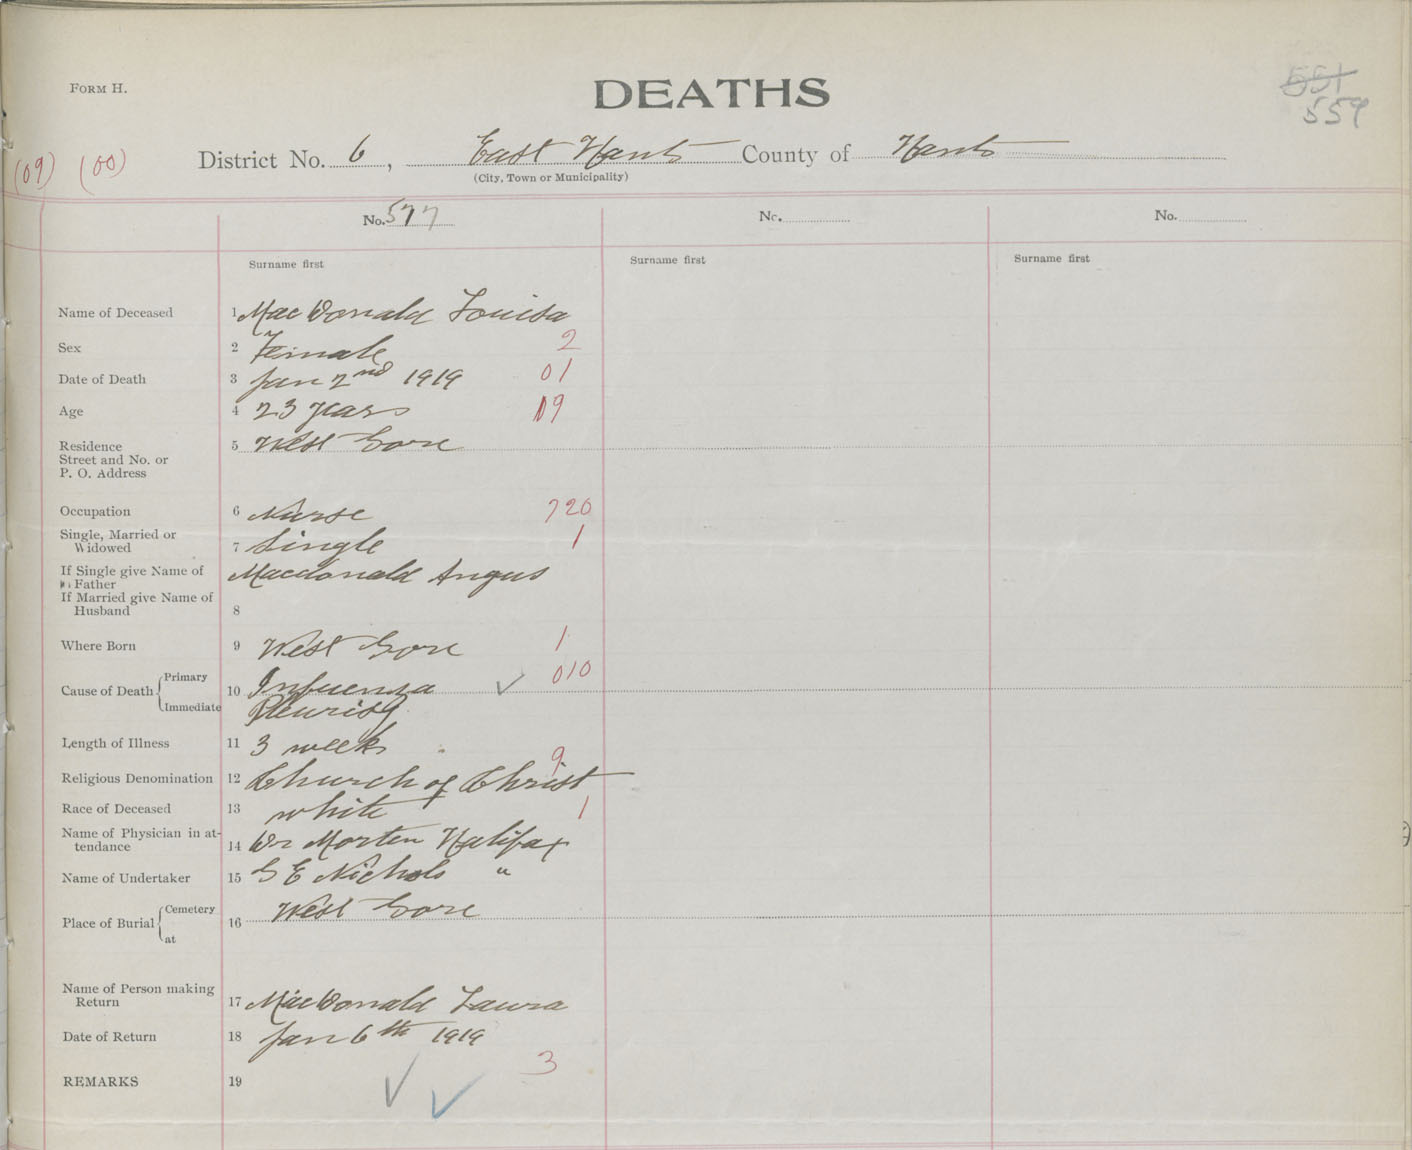 FORM H.
DEATHS
551
559
(09) (00)
District No. 6, East Hants County of Hants
(City, Town or Municipality)
No. 577
No.
No.
Surname first
Surname first
Surname first
Name of Deceased 1 MacDonald Louisa
Sex 2 Female 2
Date of Death 3 Jan 2nd 1919 01
Age 4 23 years 19
Residence 5 West Gore
Street and No. or
P. O. Address
Occupation 6 Nurse 720
Single, Married or
Widowed 7 Single 1
If Single give Name of Macdonald Angus
Father
If Married give Name of
Husband 8
Where Born 9 West Gore 1
Cause of Death Primary 10 Influenza 010
Immediate Pleurisy
Length of Illness 11 3 weeks
Religious Denomination 12 Church of Christ 9
Race of Deceased 13 white 1
Name of Physician in at-
tendance 14 Dr Morton Halifax
Name of Undertaker 15 G E Nichols "
Place of Burial Cemetery 16 West Gore
at
Name of Person making
Return 17 MacDonald Laura
Date of Return 18 Jan 6th 1919
3
REMARKS 19